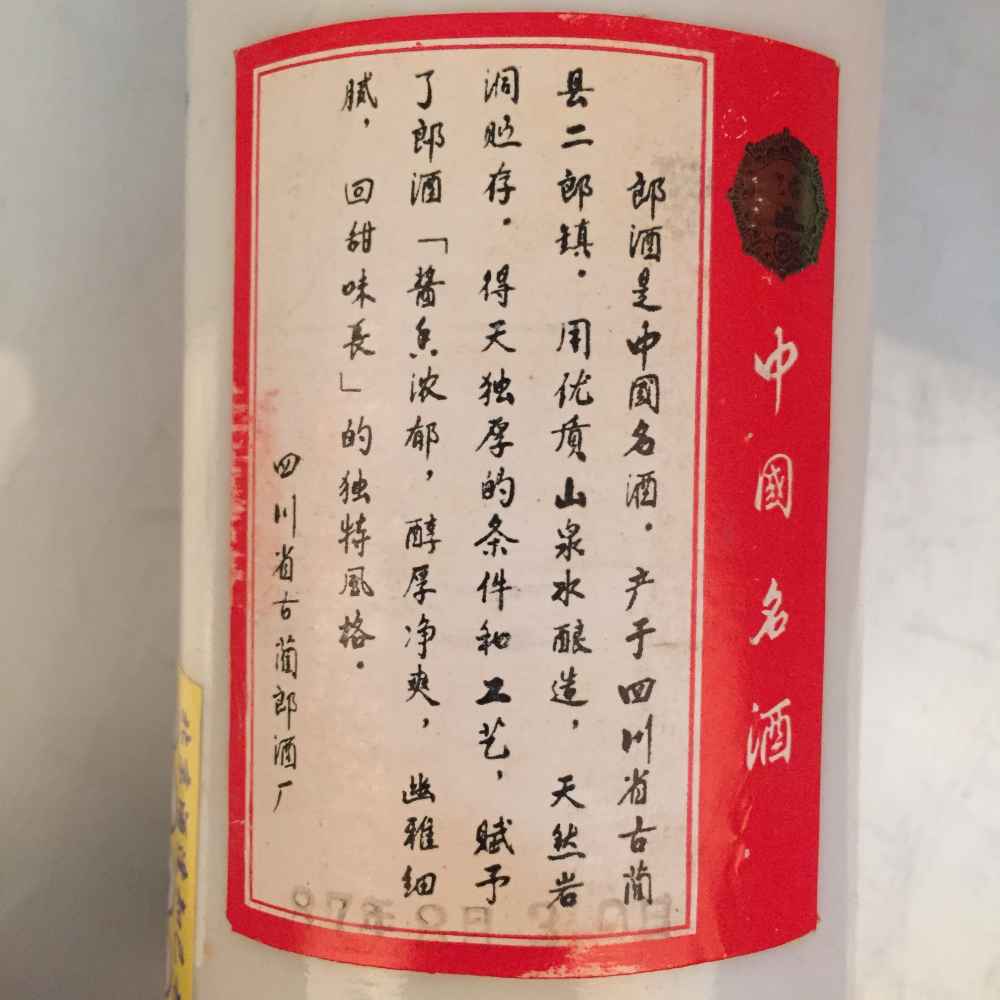 中國名酒
郎酒是中國名酒．产于四川省古藺
县二郎镇．用优质山泉水酿造，天然岩
洞贮存．得天独厚的条件和工艺，赋予
了郎酒「酱香浓郁，醇厚净爽，幽雅细
腻，回甜味長」的独特風格．
四川省古藺郎酒厂